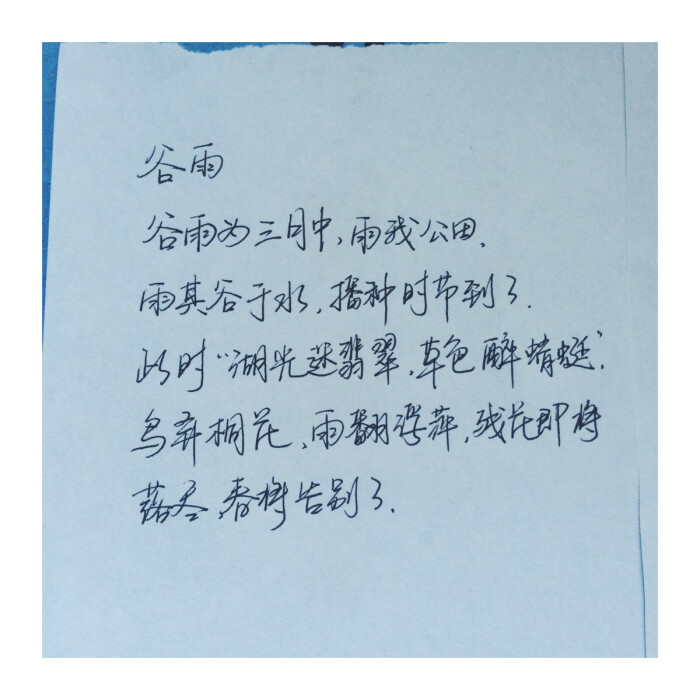 谷雨
谷雨为三月中，雨我公田．
雨其谷于水，播种时节到了．
此时“湖光迷翡翠，草色醉蜻蜓”．
鸟弄桐花，雨翻浮萍，残花即将
落尽，春将告别了．